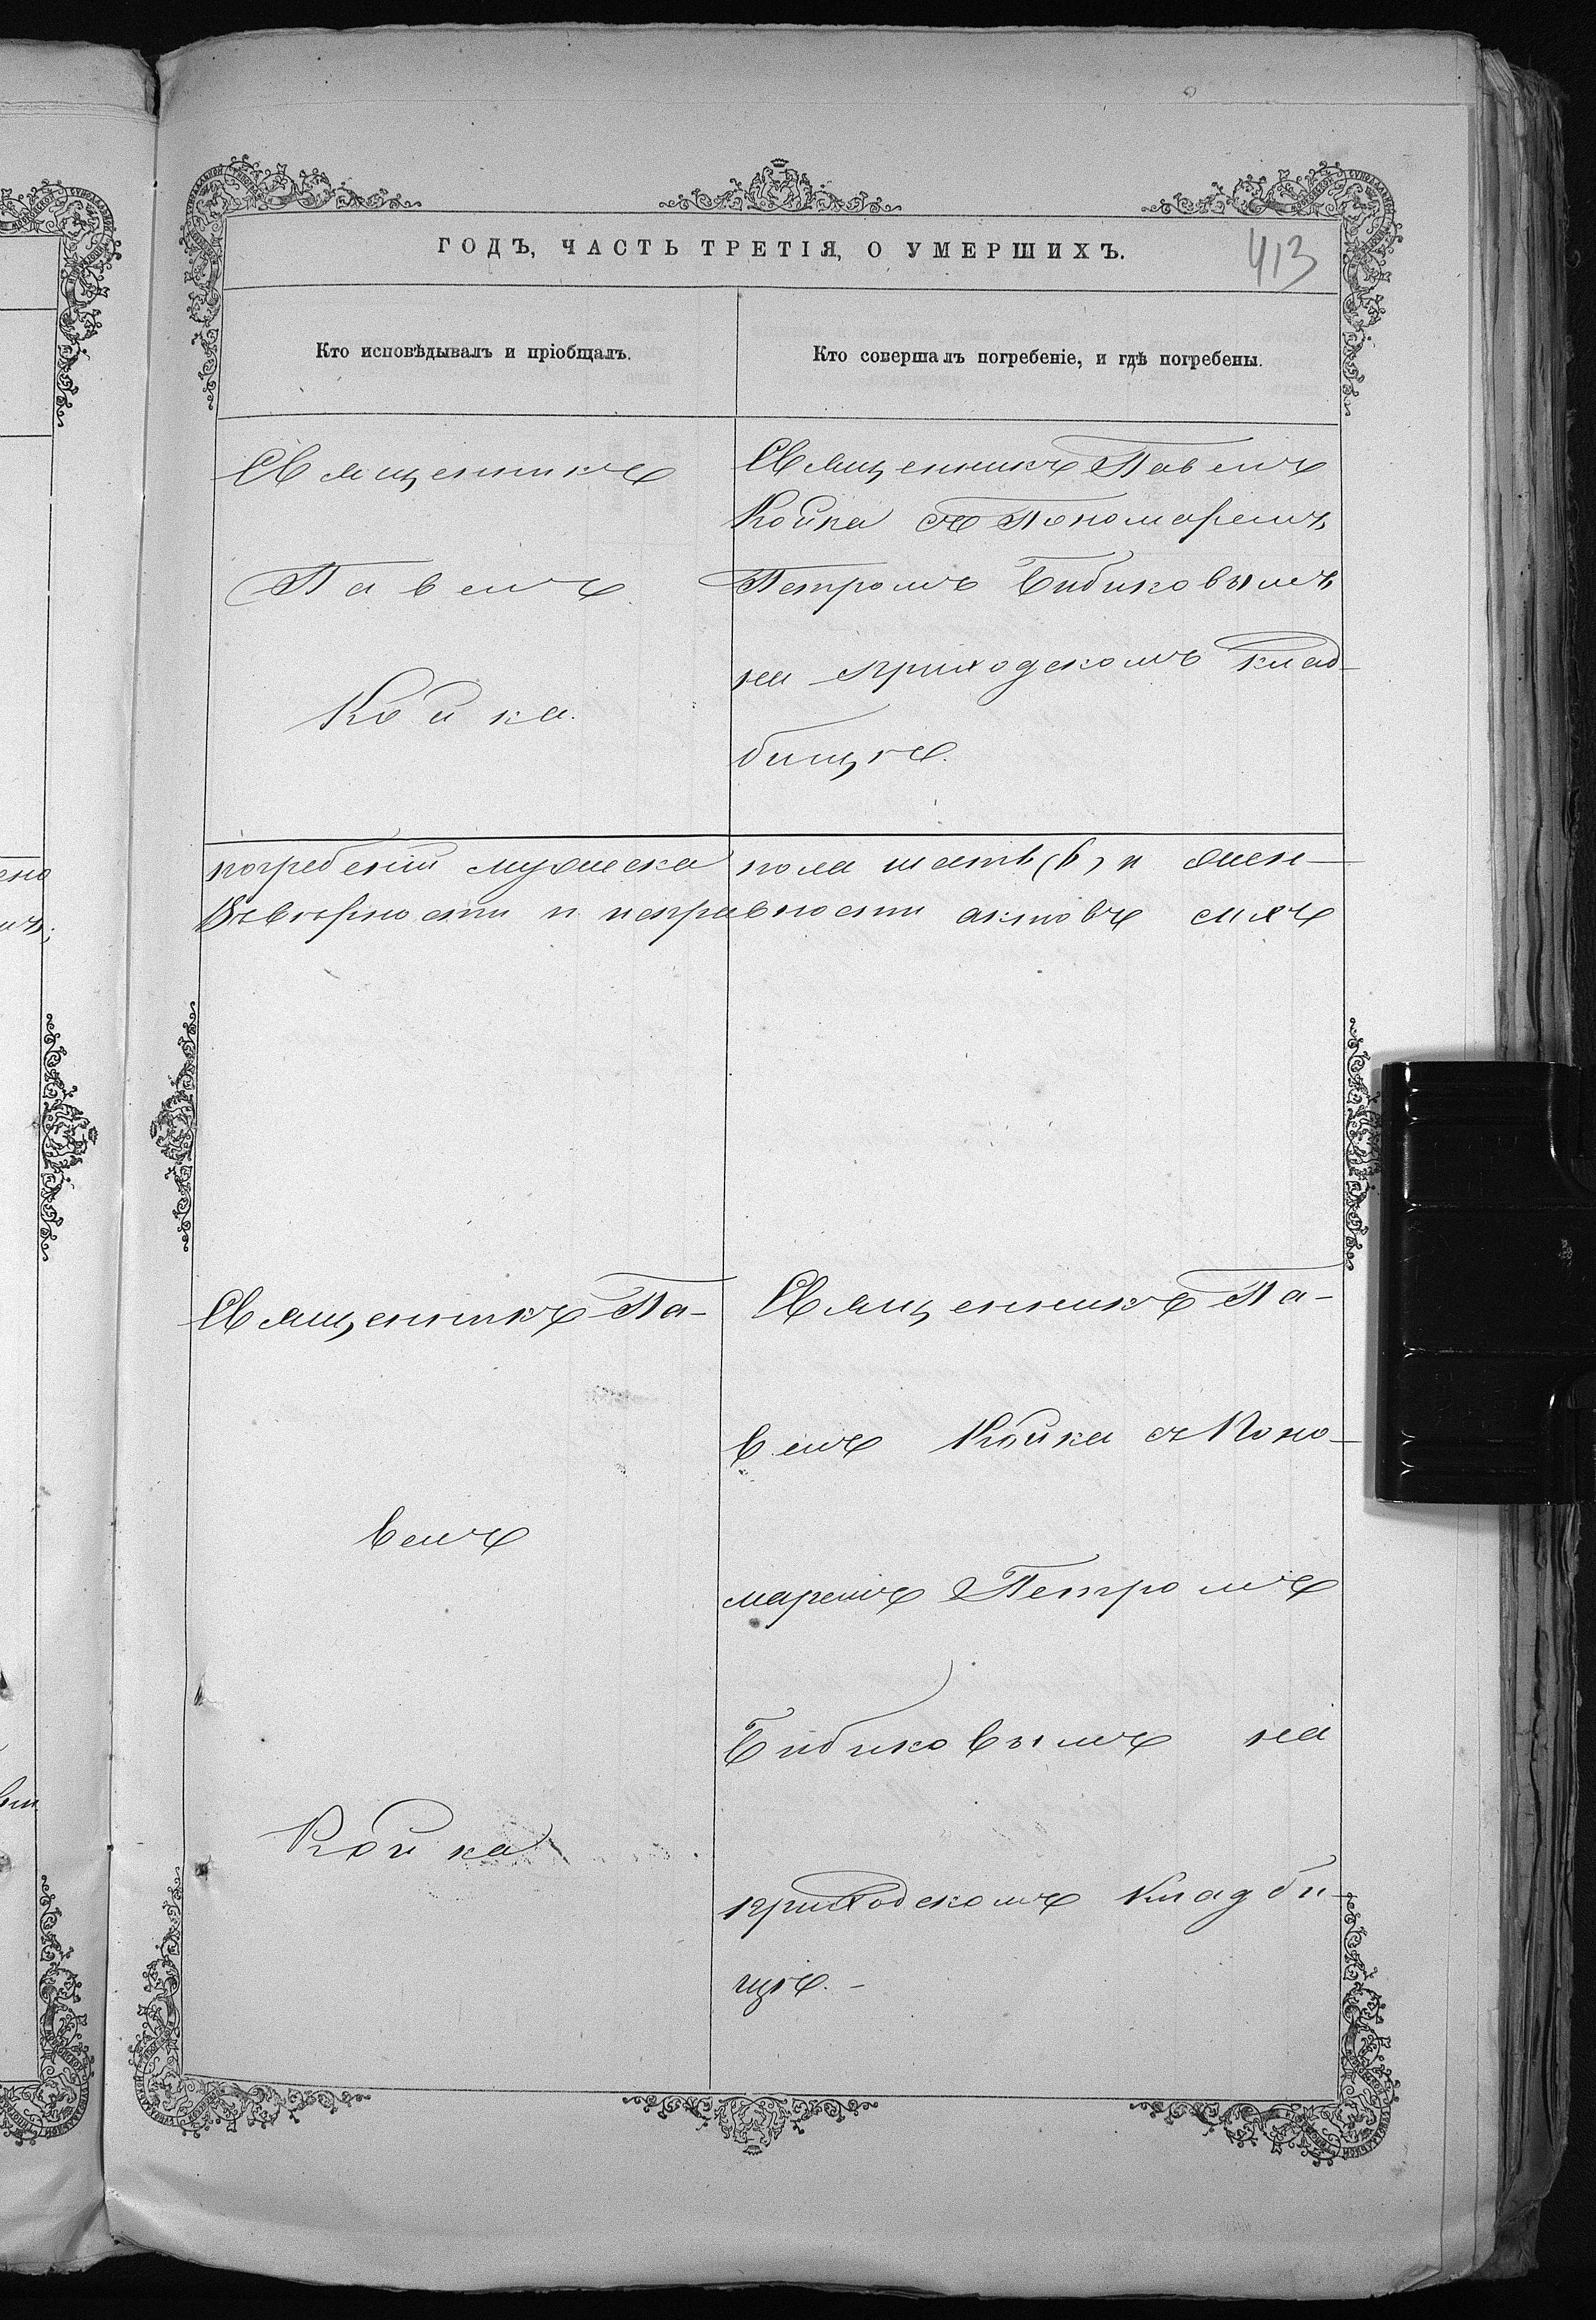 ГОДЪ, ЧАСТЬ ТРЕТІЯ, О УМЕРШИХЪ.
413
Кто исповѣдывалъ и пріобщалъ.
Кто совершалъ погребеніе, и гдѣ погребены.
Священникъ
Павелъ
Койка.
Священникъ Павелъ
Койка съ Пономаремъ
Петромъ Бибиковымъ
на приходскомъ клад-
бищѣ.
погребеній мужеска пола шесть (6) и жен-
Въ вѣрности и исправности актовъ сихъ
Священникъ Па-
велъ
Койка
Священникъ Па-
велъ Койка съ Поно-
маремъ Петромъ
Бибиковымъ на
приходскомъ кладби-
щѣ. -